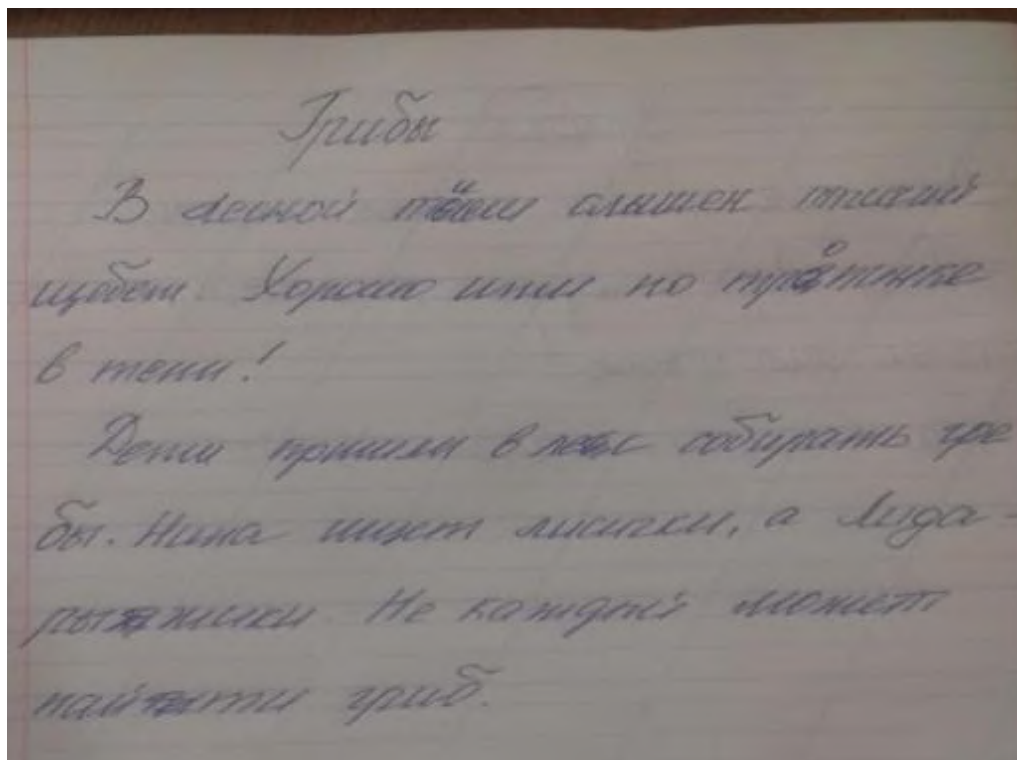 Грибы
В лесной тени слышен птичий
щебет. Хорошо идти по тропинке
в тени!
Дети пришли в лес собирать гри
бы. Нина ищет лисички, а Лида -
рыжики. Не каждый может
найти гриб.